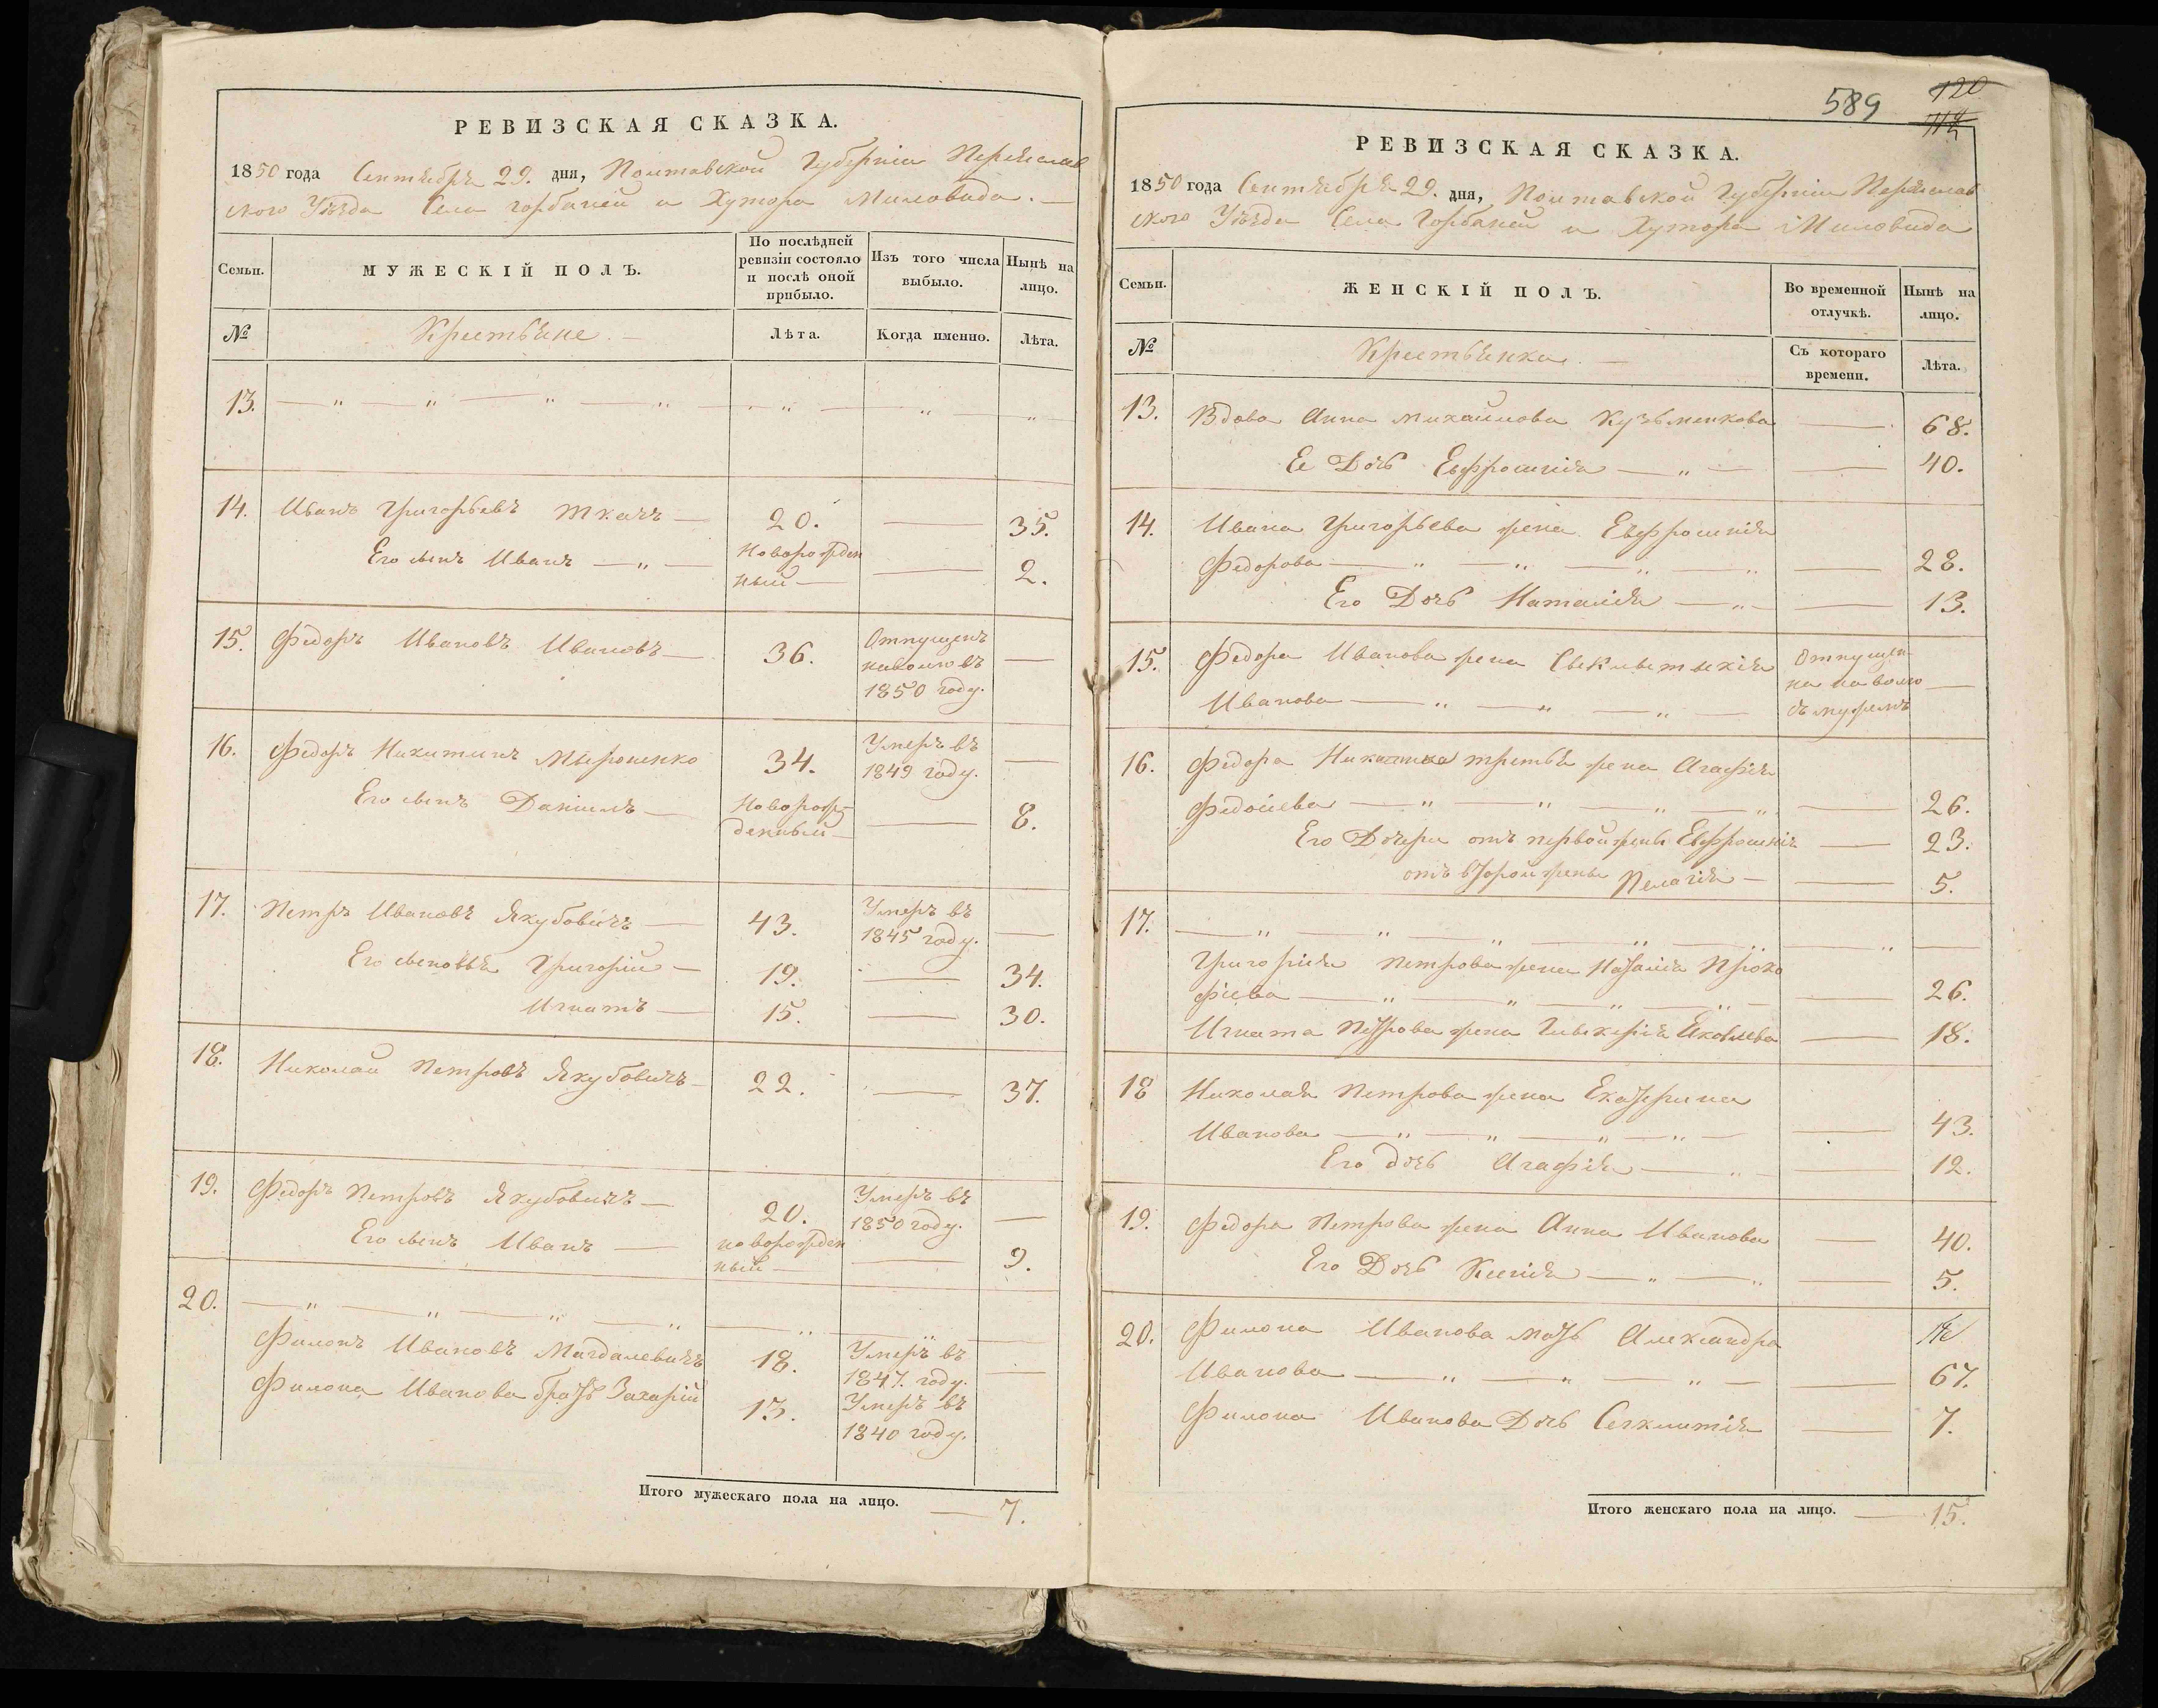 РЕВИЗСКАЯ СКАЗКА.
1850 года Сентября 29. дня, Полтавской Губерніи Переяслав
ского Уѣзда Села Горбаней и Хутора Миловида. —
Семьи.
МУЖЕСКІЙ ПОЛЪ.
По послѣдней
ревизіи состояло
и послѣ оной
прибыло.
Изъ того числа
выбыло.
Нынѣ на
лицо.
№
Крестьяне. —
Лѣта.
Когда именно.
Лѣта.
13. — " — " — " — " — " — " — "
14. Иванъ Григорьевъ Ткачъ — 20. — 35.
Его сынъ Иванъ — " — Новорожден
ный — — 2.
15. Федоръ Ивановъ Ивановъ — 36. Отпущенъ
наволю въ —
1850 году.
16. Федоръ Никитинъ Мироненко 34. Умеръ въ
1849 году. —
Его сынъ Даніилъ — Новорож-
денный — — 8.
17. Петръ Ивановъ Якубовичъ — 43. Умеръ въ
1845 году. —
Его сыновья Григорій — 19. — 34.
Игнатъ — 15. — 30.
18. Николай Петровъ Якубовичъ — 22. — 37.
19. Федоръ Петровъ Якубовичъ — 20. Умеръ въ
1850 году. —
Его сынъ Иванъ — новорожден
ный — — 9.
20. — " — " — " — " — " — " —
Филонъ Ивановъ Магдалевичъ 18. Умеръ въ
1847. году. —
Филона Иванова братъ Захарій 13. Умеръ въ
1840 году.
Итого мужескаго пола на лицо. — 7.
589
120
РЕВИЗСКАЯ СКАЗКА.
1850 года Сентября 29. дня, Полтавской Губерніи Переяслав
ского Уѣзда Села Горбаней и Хутора Миловида
Семьи.
ЖЕНСКІЙ ПОЛЪ.
Во временной
отлучкѣ.
Нынѣ на
лицо.
№
Крестьянка. —
Съ котораго
времени.
Лѣта.
13. Вдова Анна Михайлова Кузьменкова — 68.
Ее Дочь Евфросинія — " — — 40.
14. Ивана Григорьева жена Евфросинія
Федорова — " — " — " — " — 28.
Его Дочь Наталія — " — — 13.
15. Федора Иванова жена Отпущен
на на волю —
Иванова — " — " — " — съ мужемъ
16. Федора третья жена Агафія
— " — " — " — " — 26.
Его Дочери отъ первой жены Евфросинія — 23.
отъ второй жены Пелагія — — 5.
17. — " — " — " — " — " — " —
Григорія Петрова жена Наталія Проко
фіева — " — " — " — " — — 26.
Игната Петрова жена Гликерія Яковлева — 18.
18 Николая Петрова жена Екатерина
Иванова — " — " — " — " — — 43.
Его дочь Агафія — " — 12.
19. Федора Петрова жена Анна Иванова — 40.
Его Дочь Ксенія — " — " — 5.
20. Филона Иванова мать Александра
Иванова — " — " — " — — 67.
Филона Иванова Дочь — 7.
Итого женскаго пола на лицо. — 15.